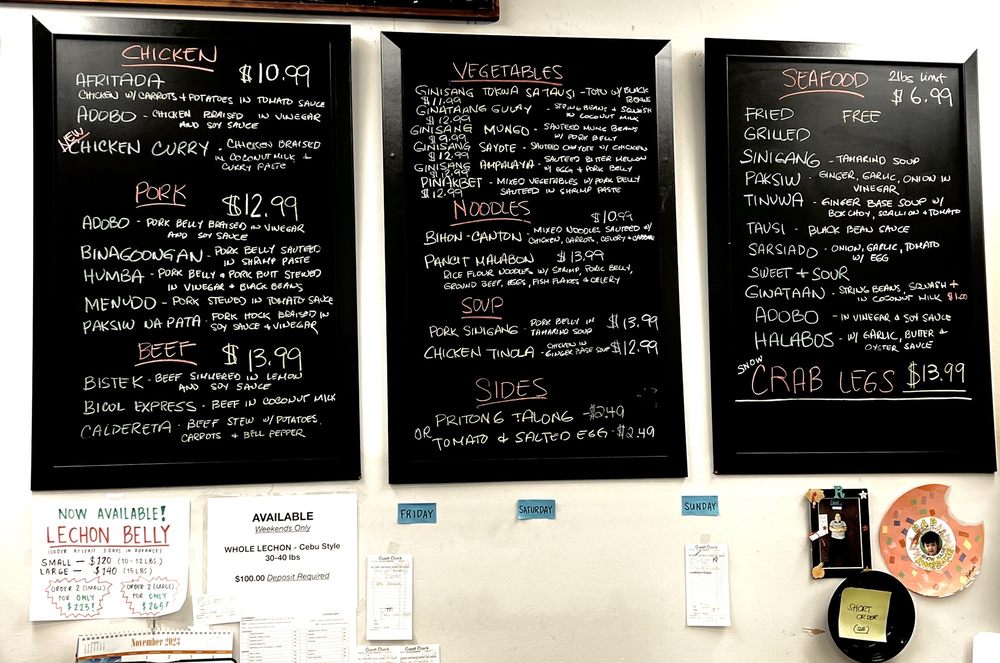 CHICKEN
AFRITADA $10.99
CHICKEN W/ CARROTS + POTATOES IN TOMATO SAUCE
ADOBO - CHICKEN BRAISED IN VINEGAR
AND SOY SAUCE
NEW
CHICKEN CURRY - CHICKEN BRAISED
IN COCONUT MILK &
CURRY PASTE
PORK
$12.99
ADOBO - PORK BELLY BRAISED IN VINEGAR
AND SOY SAUCE
BINAGOONGAN - PORK BELLY SAUTEED
IN SHRIMP PASTE
HUMBA - PORK BELLY & PORK BUTT STEWED
IN VINEGAR & BLACK BEANS
MENUDO - PORK STEWED IN TOMATO SAUCE
PAKSIW NA PATA - PORK HOCK BRAISED IN
SOY SAUCE & VINEGAR
BEEF $13.99
BISTEK - BEEF SIMMERED IN LEMON
AND SOY SAUCE
BICOL EXPRESS - BEEF IN COCONUT MILK
CALDERETA - BEEF STEW W/ POTATOES,
CARROTS & BELL PEPPER
VEGETABLES
GINISANG TOKWA SA TAUSI - TOFU W/ BLACK
$11.99
GINATAANG GULAY - STRING BEANS & SQUASH
IN COCONUT MILK
$12.99
GINISANG MUNGO - SAUTEED MUNG BEANS
W/ PORK BELLY
$9.99
GINISANG SAYOTE - SAUTEED CHAYOTE W/ CHICKEN
$12.99
GINISANG AMPALAYA - SAUTEED BITTER MELLON
W/ EGG & PORK BELLY
$12.99
PINAKBET - MIXED VEGETABLES W/ PORK BELLY
SAUTEED IN SHRIMP PASTE
$12.99
NOODLES
$10.99
BIHON-CANTON - MIXED NOODLES SAUTEED W/
CHICKEN, CARROTS, CELERY & CABBAGE
PANCIT MALABON $13.99
RICE FLOUR NOODLES W/ SHRIMP, PORK BELLY,
GROUND BEEF, EGGS, FISH FLAKES & CELERY
SOUP
PORK SINIGANG - PORK BELLY IN
TAMARIND SOUP $13.99
CHICKEN TINOLA - CHICKEN IN
GINGER BASE SOUP $12.99
SIDES
PRITONG TALONG - $2.49
OR TOMATO & SALTED EGG - $2.49
SEAFOOD 2lbs limit
$6.99
FRIED FREE
GRILLED
SINIGANG - TAMARIND SOUP
PAKSIW - GINGER, GARLIC, ONION IN
VINEGAR
TINUWA - GINGER BASE SOUP W/
BOK CHOY, SCALLION & TOMATO
TAUSI - BLACK BEAN SAUCE
SARSIADO - ONION, GARLIC, TOMATO
W/ EGG
SWEET + SOUR
GINATAAN - STRING BEANS, SQUASH +
IN COCONUT MILK $1.00
ADOBO - IN VINEGAR & SOY SAUCE
HALABOS - W/ GARLIC, BUTTER &
OYSTER SAUCE
SNOW
CRAB LEGS $13.99
NOW AVAILABLE!
LECHON BELLY
(ORDER ATLEAST 3 DAYS IN ADVANCE)
SMALL — $120 (10-12 LBS)
LARGE — $140 (15 LBS)
ORDER 2 (SMALL)
FOR ONLY
$225!
ORDER 2 (LARGE)
FOR ONLY
$265!
AVAILABLE
Weekends Only
WHOLE LECHON - Cebu Style
30-40 lbs
$100.00 Deposit Required
FRIDAY
SATURDAY
SUNDAY
Guest Check
Guest Check
Guest Check
Guest Check
November 2023
R
SHORT
ORDER